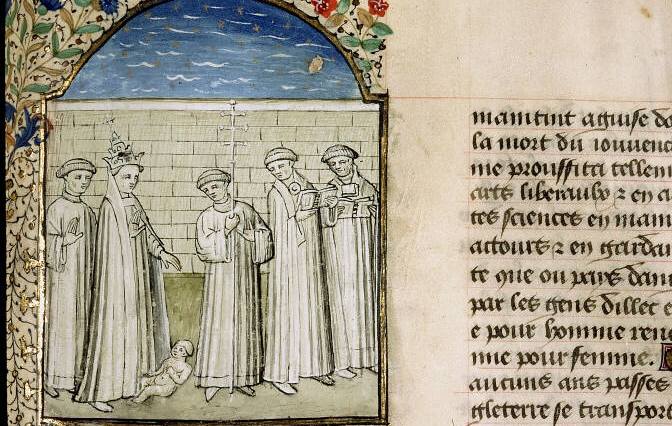 maintint aguise do
la mort du iouvenc
me prouffita tellem
arts liberaulx ⁊ en a
tes sciences en mani
actours ⁊ en gardai
te que ou pays dans
par les gens dillec e
e pour homme ren
me pour femme.
aucuns ans passes
gleterre se transport